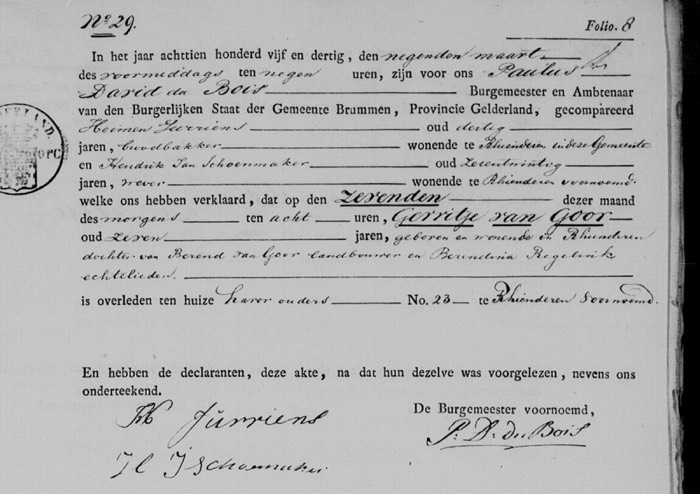 No 29. Folio. 8
In het jaar achttien honderd vijf en dertig, den negenden maart
des voormeddags ten negen uren, zijn voor ons Paulus
David du Bois Burgemeester en Ambtenaar
van den Burgerlijken Staat der Gemeente Brummen, Provincie Gelderland, gecompareerd
Heimen Jurriens oud dertig
jaren, broodbakker wonende te Rhienderen in deze Gemeente
en Hendrik Jan Schoenmaker oud zeventwintig
jaren, wever wonende te Rhienderen voornoemd.
welke ons hebben verklaard, dat op den zevenden dezer maand
des morgens ten acht uren, Gerritje van Goor
oud zeven jaren, geboren en wonende in Rhienderen
dochter van Berend van Goor landbouwer en Berendina Regelink
echtelieden.
is overleden ten huize harer ouders No. 23 te Rhienderen voornoemd.
En hebben de declaranten, deze akte, na dat hun dezelve was voorgelezen, nevens ons
onderteekend.
De Burgemeester voornoemd,
Jurriens
P. D. du Bois
J Schoenmaker